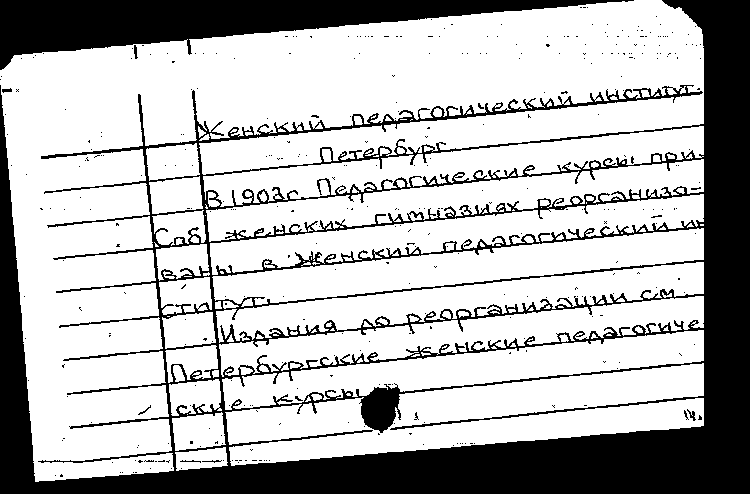 Женский педагогический институт.
Петербург
В 1903г. Педагогические курсы при
Спб. женских гимназиях реорганизо-
ваны в Женский педагогический ин
ститут.
Издания до реорганизации см.
Петербургские женские педагогиче
ские курсы